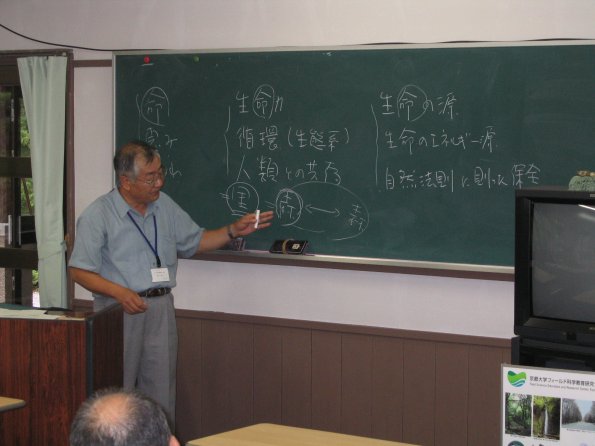 命
恵み
生命力
循環(生態系)
人類との共存
森
生命の源
生命のエネルギー源
自然法則に則した保全
京都大学フィールド科学教育研究